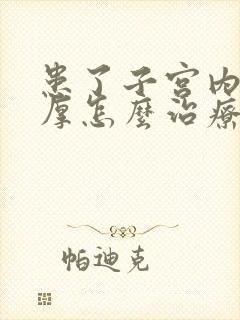 患了子宫内
厚怎麼治療
帕迪克